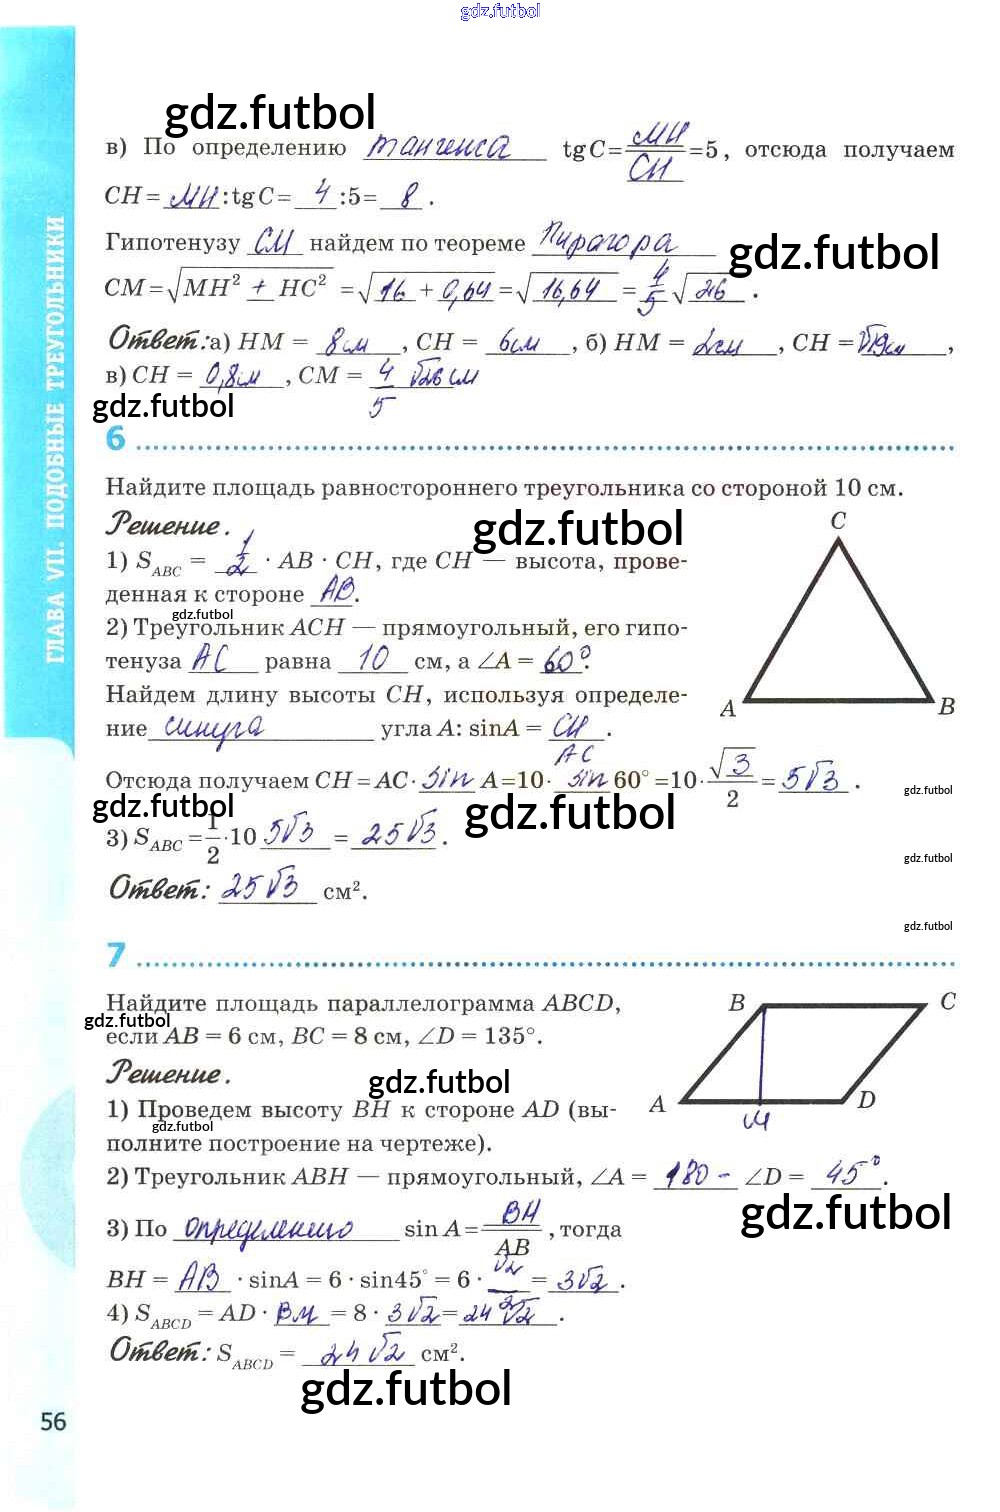 gdz.futbol
gdz.futbol
в) По определению тангенса tgC=МН/СН=5, отсюда получаем
CH=МН:tgC=4:5=8.
Гипотенузу СМ найдем по теореме Пифагора
gdz.futbol
CM=√MH²+HC² =√16+0,64=√16,64=4/5√26.
Ответ: а) HM = 8см, CH = 6см, б) HM = 2см, CH =√19см,
в) CH = 0,8см, CM = 4/5 √26см
gdz.futbol
ГЛАВА VII. ПОДОБНЫЕ ТРЕУГОЛЬНИКИ
6
Найдите площадь равностороннего треугольника со стороной 10 см.
Решение.
gdz.futbol
C
1) S_ABC = 1/2 · AB · CH, где CH — высота, прове-
денная к стороне АВ.
gdz.futbol
2) Треугольник ACH — прямоугольный, его гипо-
тенуза АС равна 10 см, а ∠A = 60°.
Найдем длину высоты CH, используя определе-
ние синуса угла A: sinA = СН/АС.
A
B
Отсюда получаем CH=AC·sin A=10·sin 60°=10·√3/2=5√3.
gdz.futbol
gdz.futbol
gdz.futbol
3) S_ABC=1/2·10 5√3=25√3.
gdz.futbol
Ответ: 25√3 см².
gdz.futbol
7
Найдите площадь параллелограмма ABCD,
gdz.futbol
если AB = 6 см, BC = 8 см, ∠D = 135°.
B
C
A
D
Решение.
gdz.futbol
1) Проведем высоту BH к стороне AD (вы-
gdz.futbol
полните построение на чертеже).
2) Треугольник ABH — прямоугольный, ∠A = 180 - ∠D = 45°.
gdz.futbol
3) По определению sin A=ВН/AB, тогда
BH = АВ · sinA = 6 · sin45° = 6 · √2/2=3√2.
4) S_ABCD = AD · ВМ = 8 · 3√2=24√2.
Ответ: S_ABCD = 24√2 см².
gdz.futbol
56